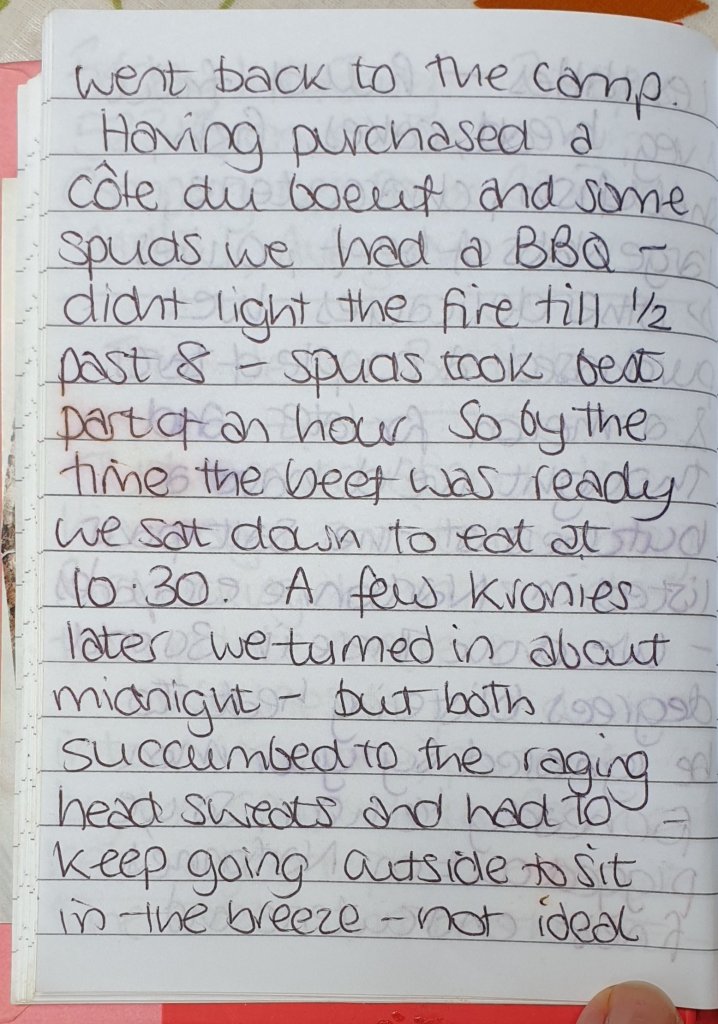 went back to the camp.
Having purchased a
côte du boeuf and some
spuds we had a BBQ -
didnt light the fire till 1/2
past 8 - spuds took best
part of an hour so by the
time the beef was ready
we sat down to eat at
10.30. A few Kronies
later we turned in about
midnight - but both
succumbed to the raging
head sweats and had to -
keep going outside to sit
in the breeze - not ideal